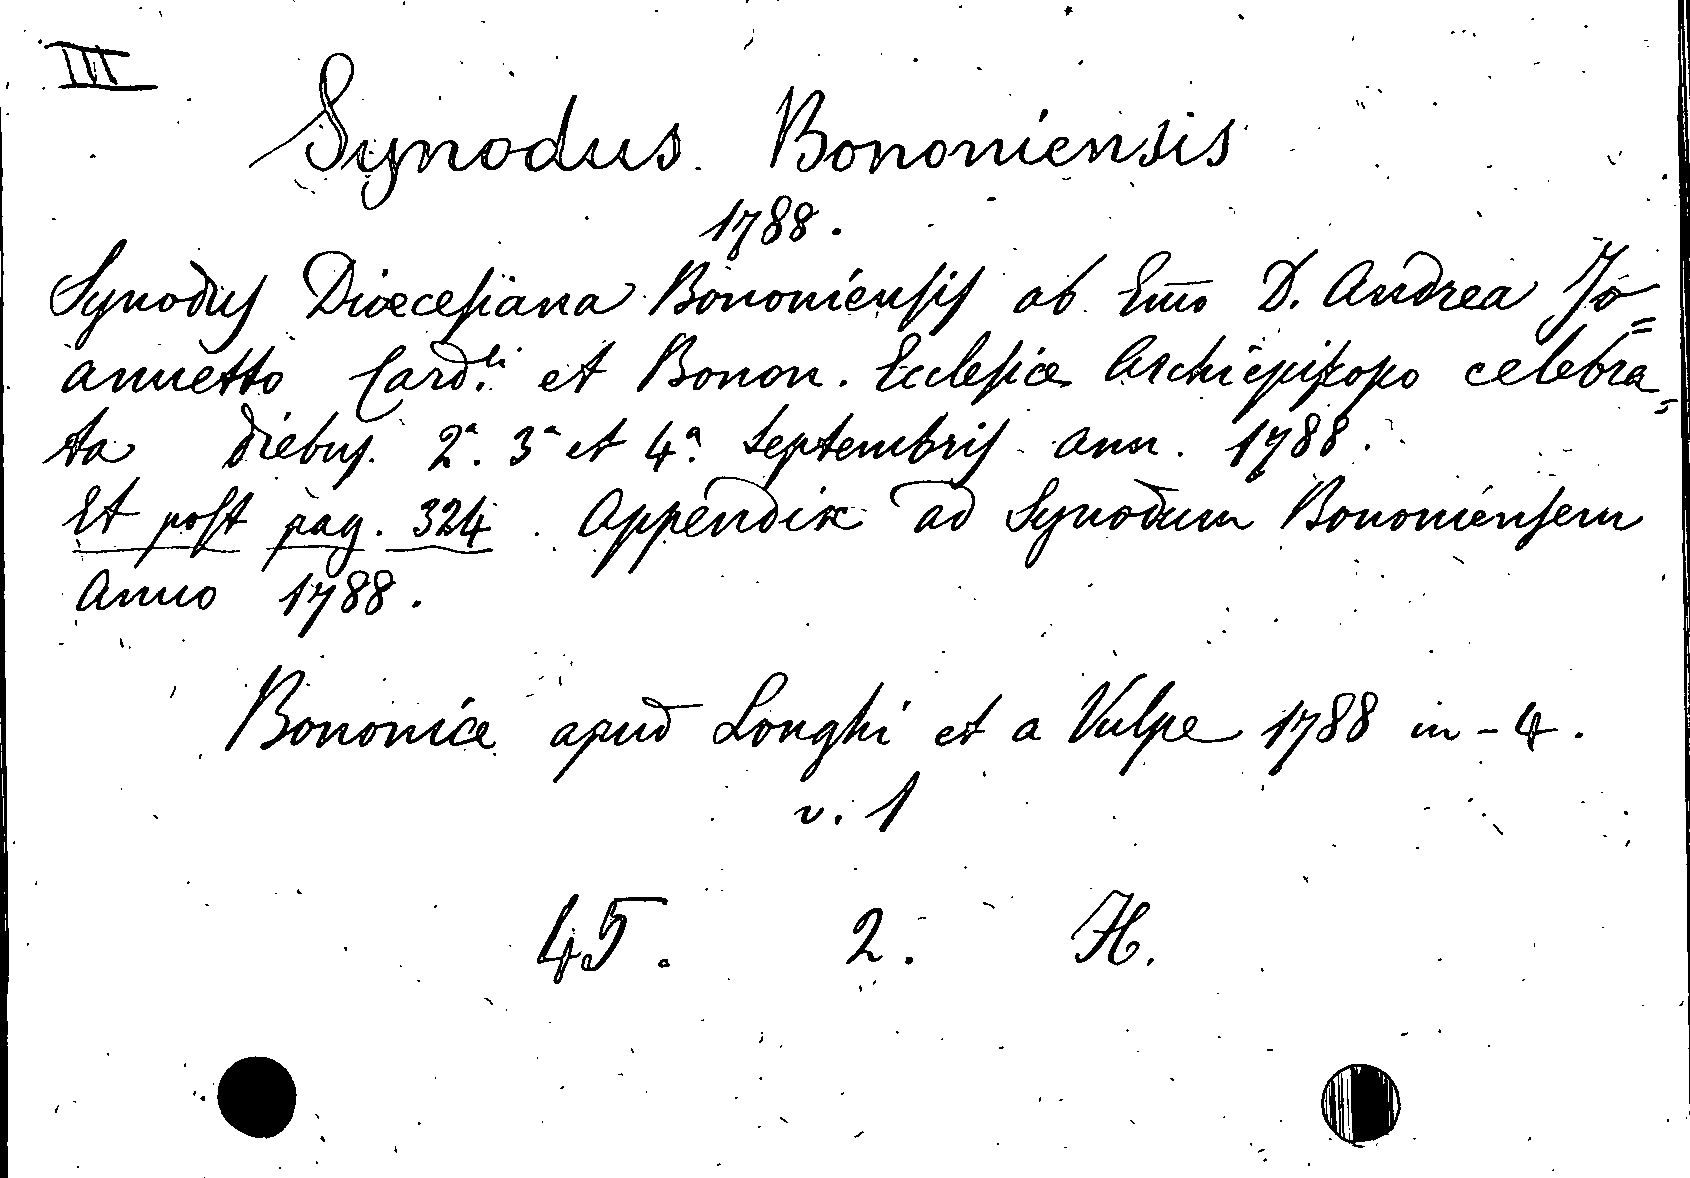 III
Synodus Bononiensis
1788.
Synodus Diœcesana Bononiensis ab Emo D. Andrea Jo=
annetto Card.li et Bonon. Ecclesiæ Archiepiscopo celebra=
ta diebus. 2a. 3a et 4a. Septembris ann. 1788.
Et post pag. 324. Appendix ad Synodum Bononiensem
Anno 1788.
Bononiæ apud Longhi et a Vulpe 1788 in-4.
v. 1
45. 2. H.